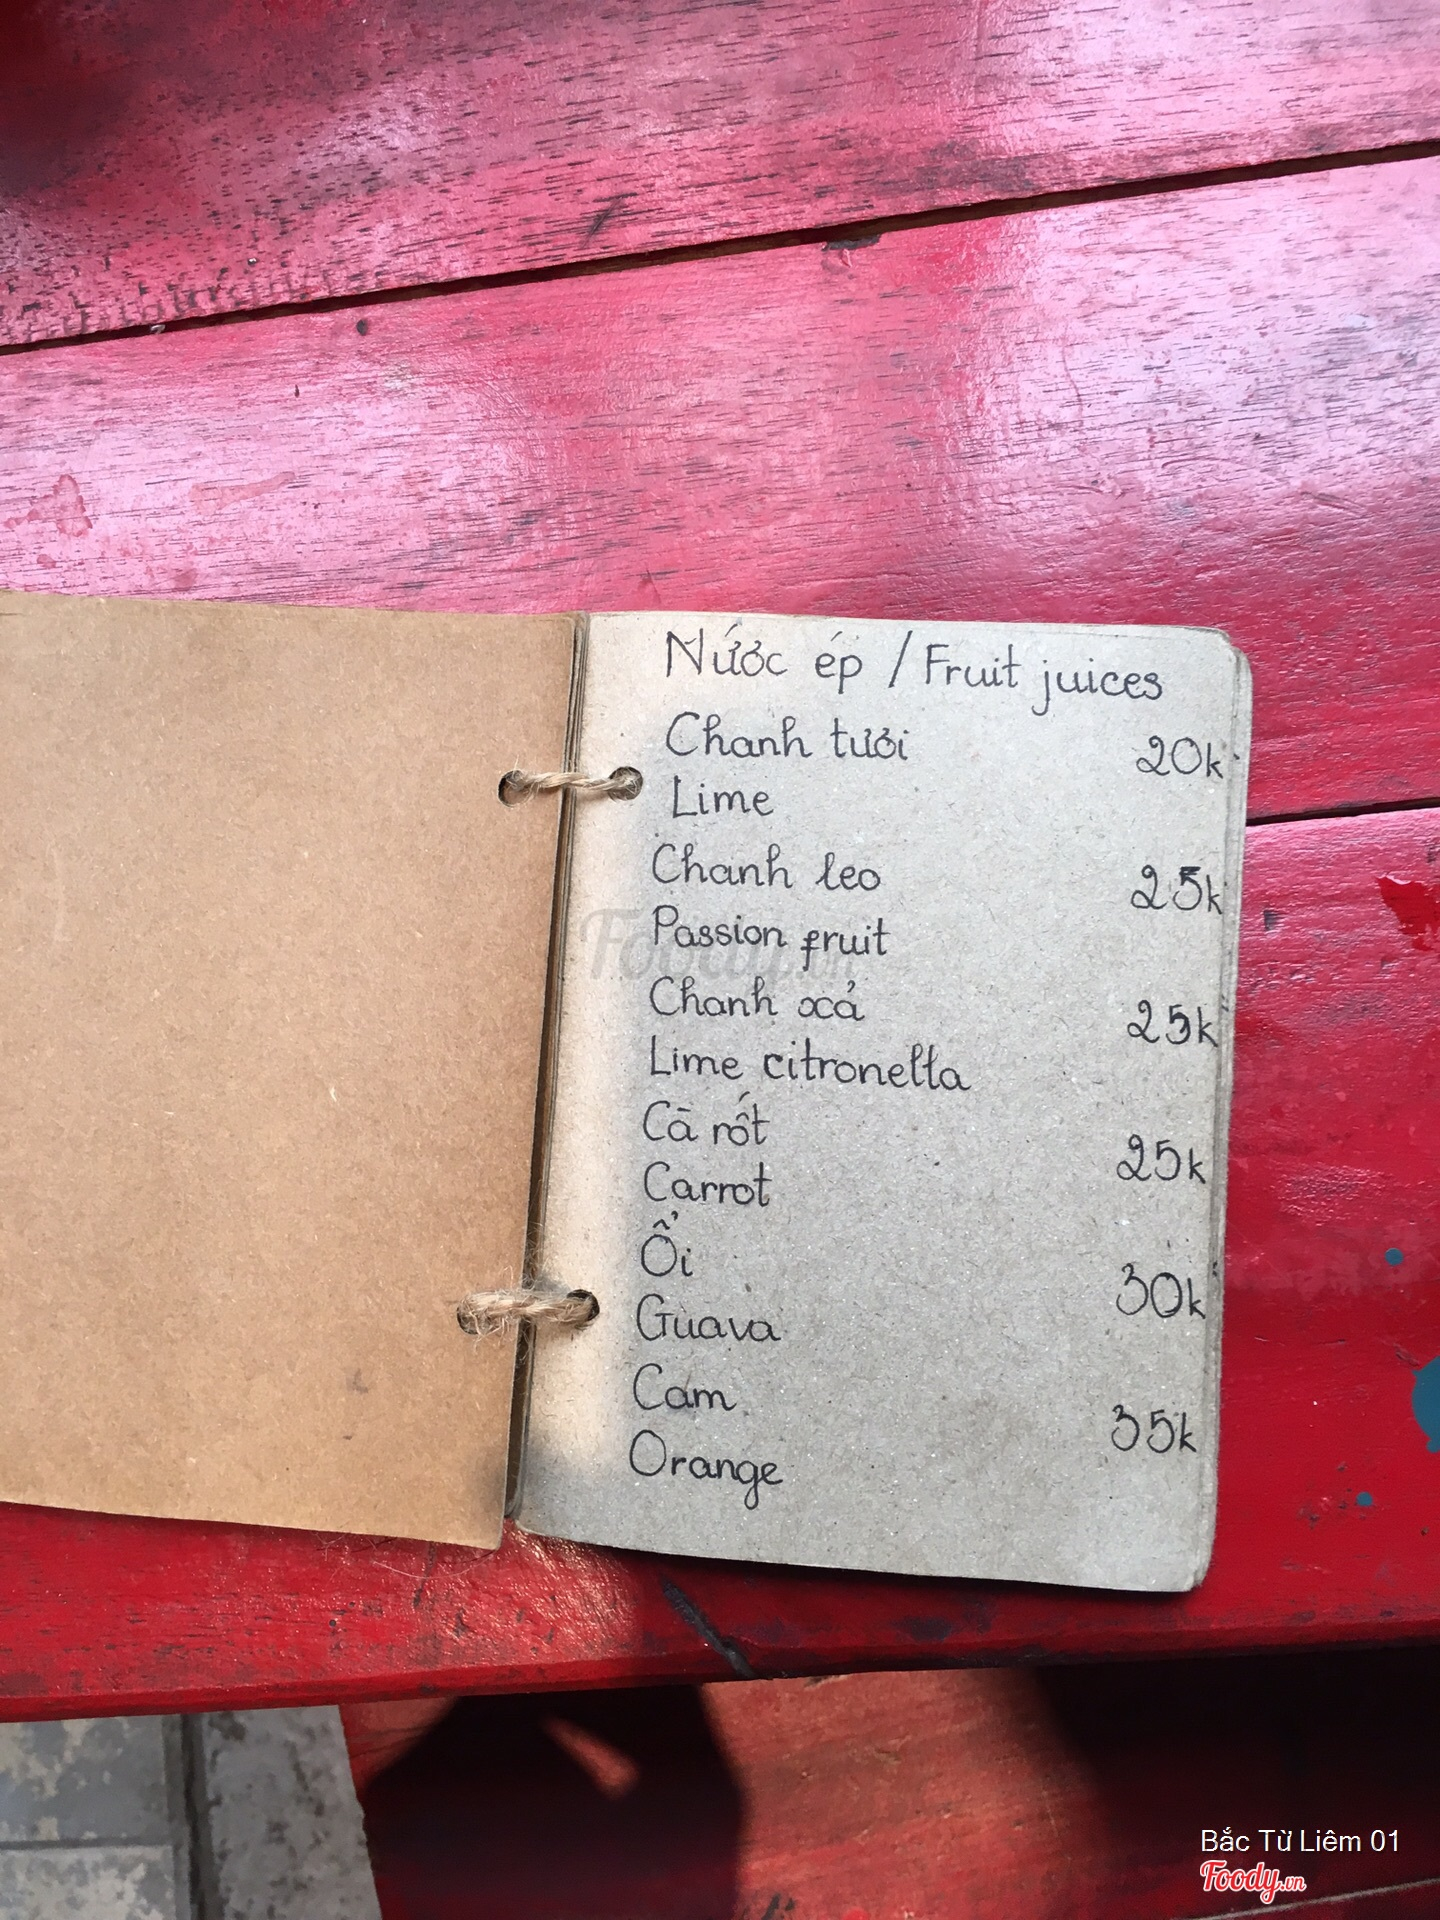 Nước ép / Fruit juices
Chanh tươi 20k
Lime
Chanh leo 25k
Passion fruit
Chanh xả 25k
Lime citronella
Cà rốt 25k
Carrot
Ổi 30k
Guava
Cam 35k
Orange
Foody.vn
Bắc Từ Liêm 01
Foody.vn